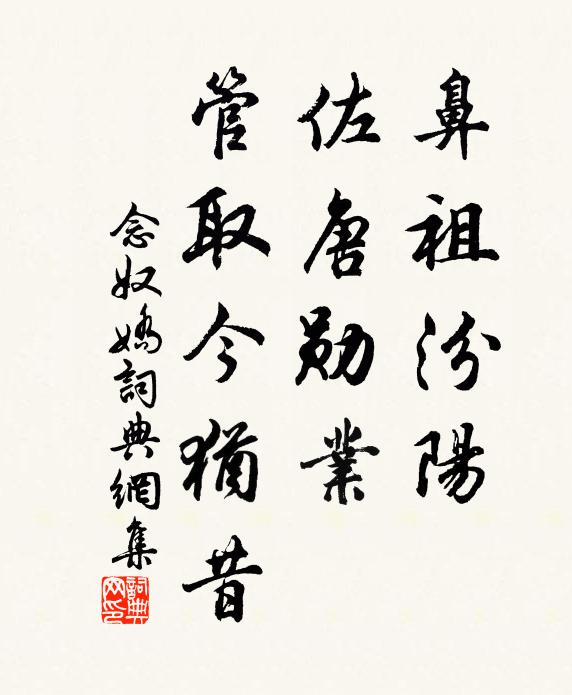 鼻祖汾陽
佐唐勛業
管取今猶昔
念奴嬌詞典網集
詞典网印